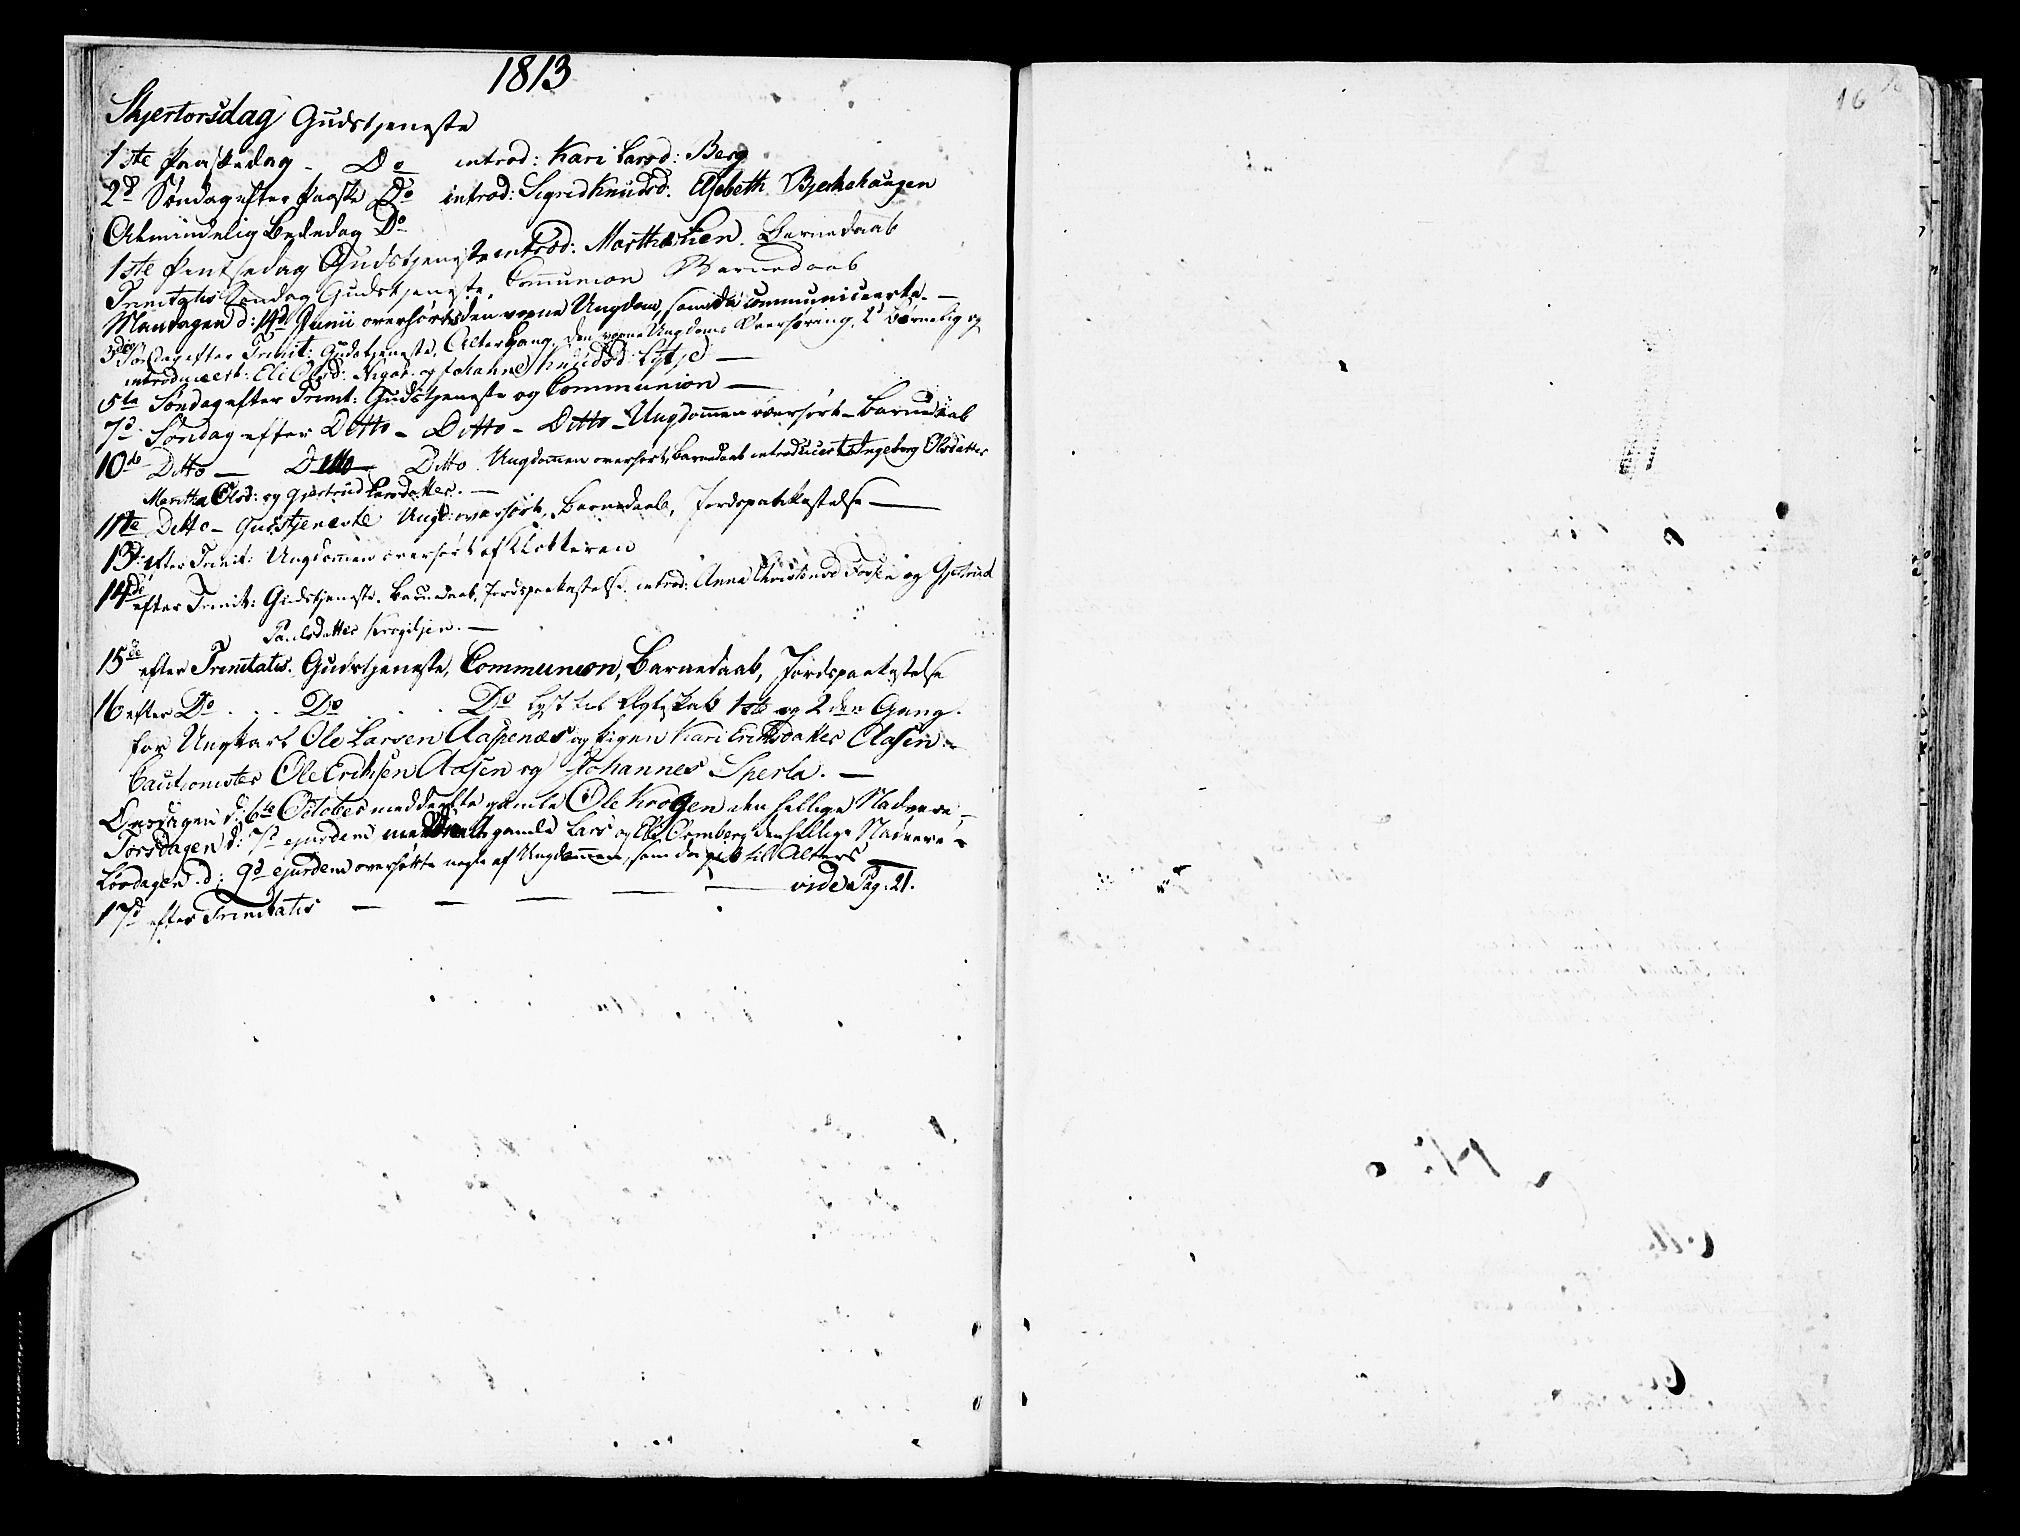 1813
Skjertorsdag Gudstjeneste
1ste Paaskedag - Do introd: Kari Larsd: Berg
2d Søndag efter Paaske Do introd: Sigrid Knudsd. Elsebeth Bjerkehaugen
Almindelig Bededag Do
1ste Pintsedag Gudstjeneste introd: Marthe Lien. Barnedaab
Trinitatis Søndag Gudstjeneste, Communion Barnedaab
Mandagen d: 14d Junii overhørtes den voxne Ungdom, som da communiceerte. —
3die Søndag efter Trinit: Gudstjeneste, Altergang, den voxne Ungdoms Overhøring, 2d Børnelig og
introduceert: Eli Olsd: og Johanne Knudsd: —
5te Søndag efter Trinit: Gudstjeneste og Communion —
7d Søndag efter Ditto - Ditto - Ditto - Ungdommen overhørt - Barnedaab
10de Ditto — Ditto Ditto. Ungdommen overhørt, Barnedaab introduceert Ingeborg Olsdatter
Maritha Olsd: og Gjertrud Larsdatter. —
11te Ditto - Gudstjeneste Ungd: overhørt, Barnedaab, Jordspaakastelse —
13d: efter Trinit: Ungdommen overhørt af Klokkeren
14de efter Trinit: Gudstjeneste. Barnedaab, Jordspaakastelse. introd: Anna Christensd Fossen og Gjertrud
Paulsdatter —
15de efter Trinitatis. Gudstjeneste, Communion, Barnedaab, Jordspaakastelse
16 efter Do . . . Do . . . Do Lyst til Ægteskab 1ste og 2den Gang.
for Ungkarl Ole Larsen Aaspenæs og Pigen Kari Eriksdatter Aasen. -
Cautionister Ole Eriksen Aasen og Johannes Sperla. —
Onsdagen d: 6te October meddeelte gamle Ole Krogen den hellige Nadvere, -
Torsdagen d: 7d ejusdem meddeelt gamle Lars og Ornberg den hellige Nadvere -
Løverdagen d: 9d ejusdem overhørte nogle af Ungdommen, som da gik til Alters —
17d efter Trinitatis — — — — — vide Pag. 21.
16